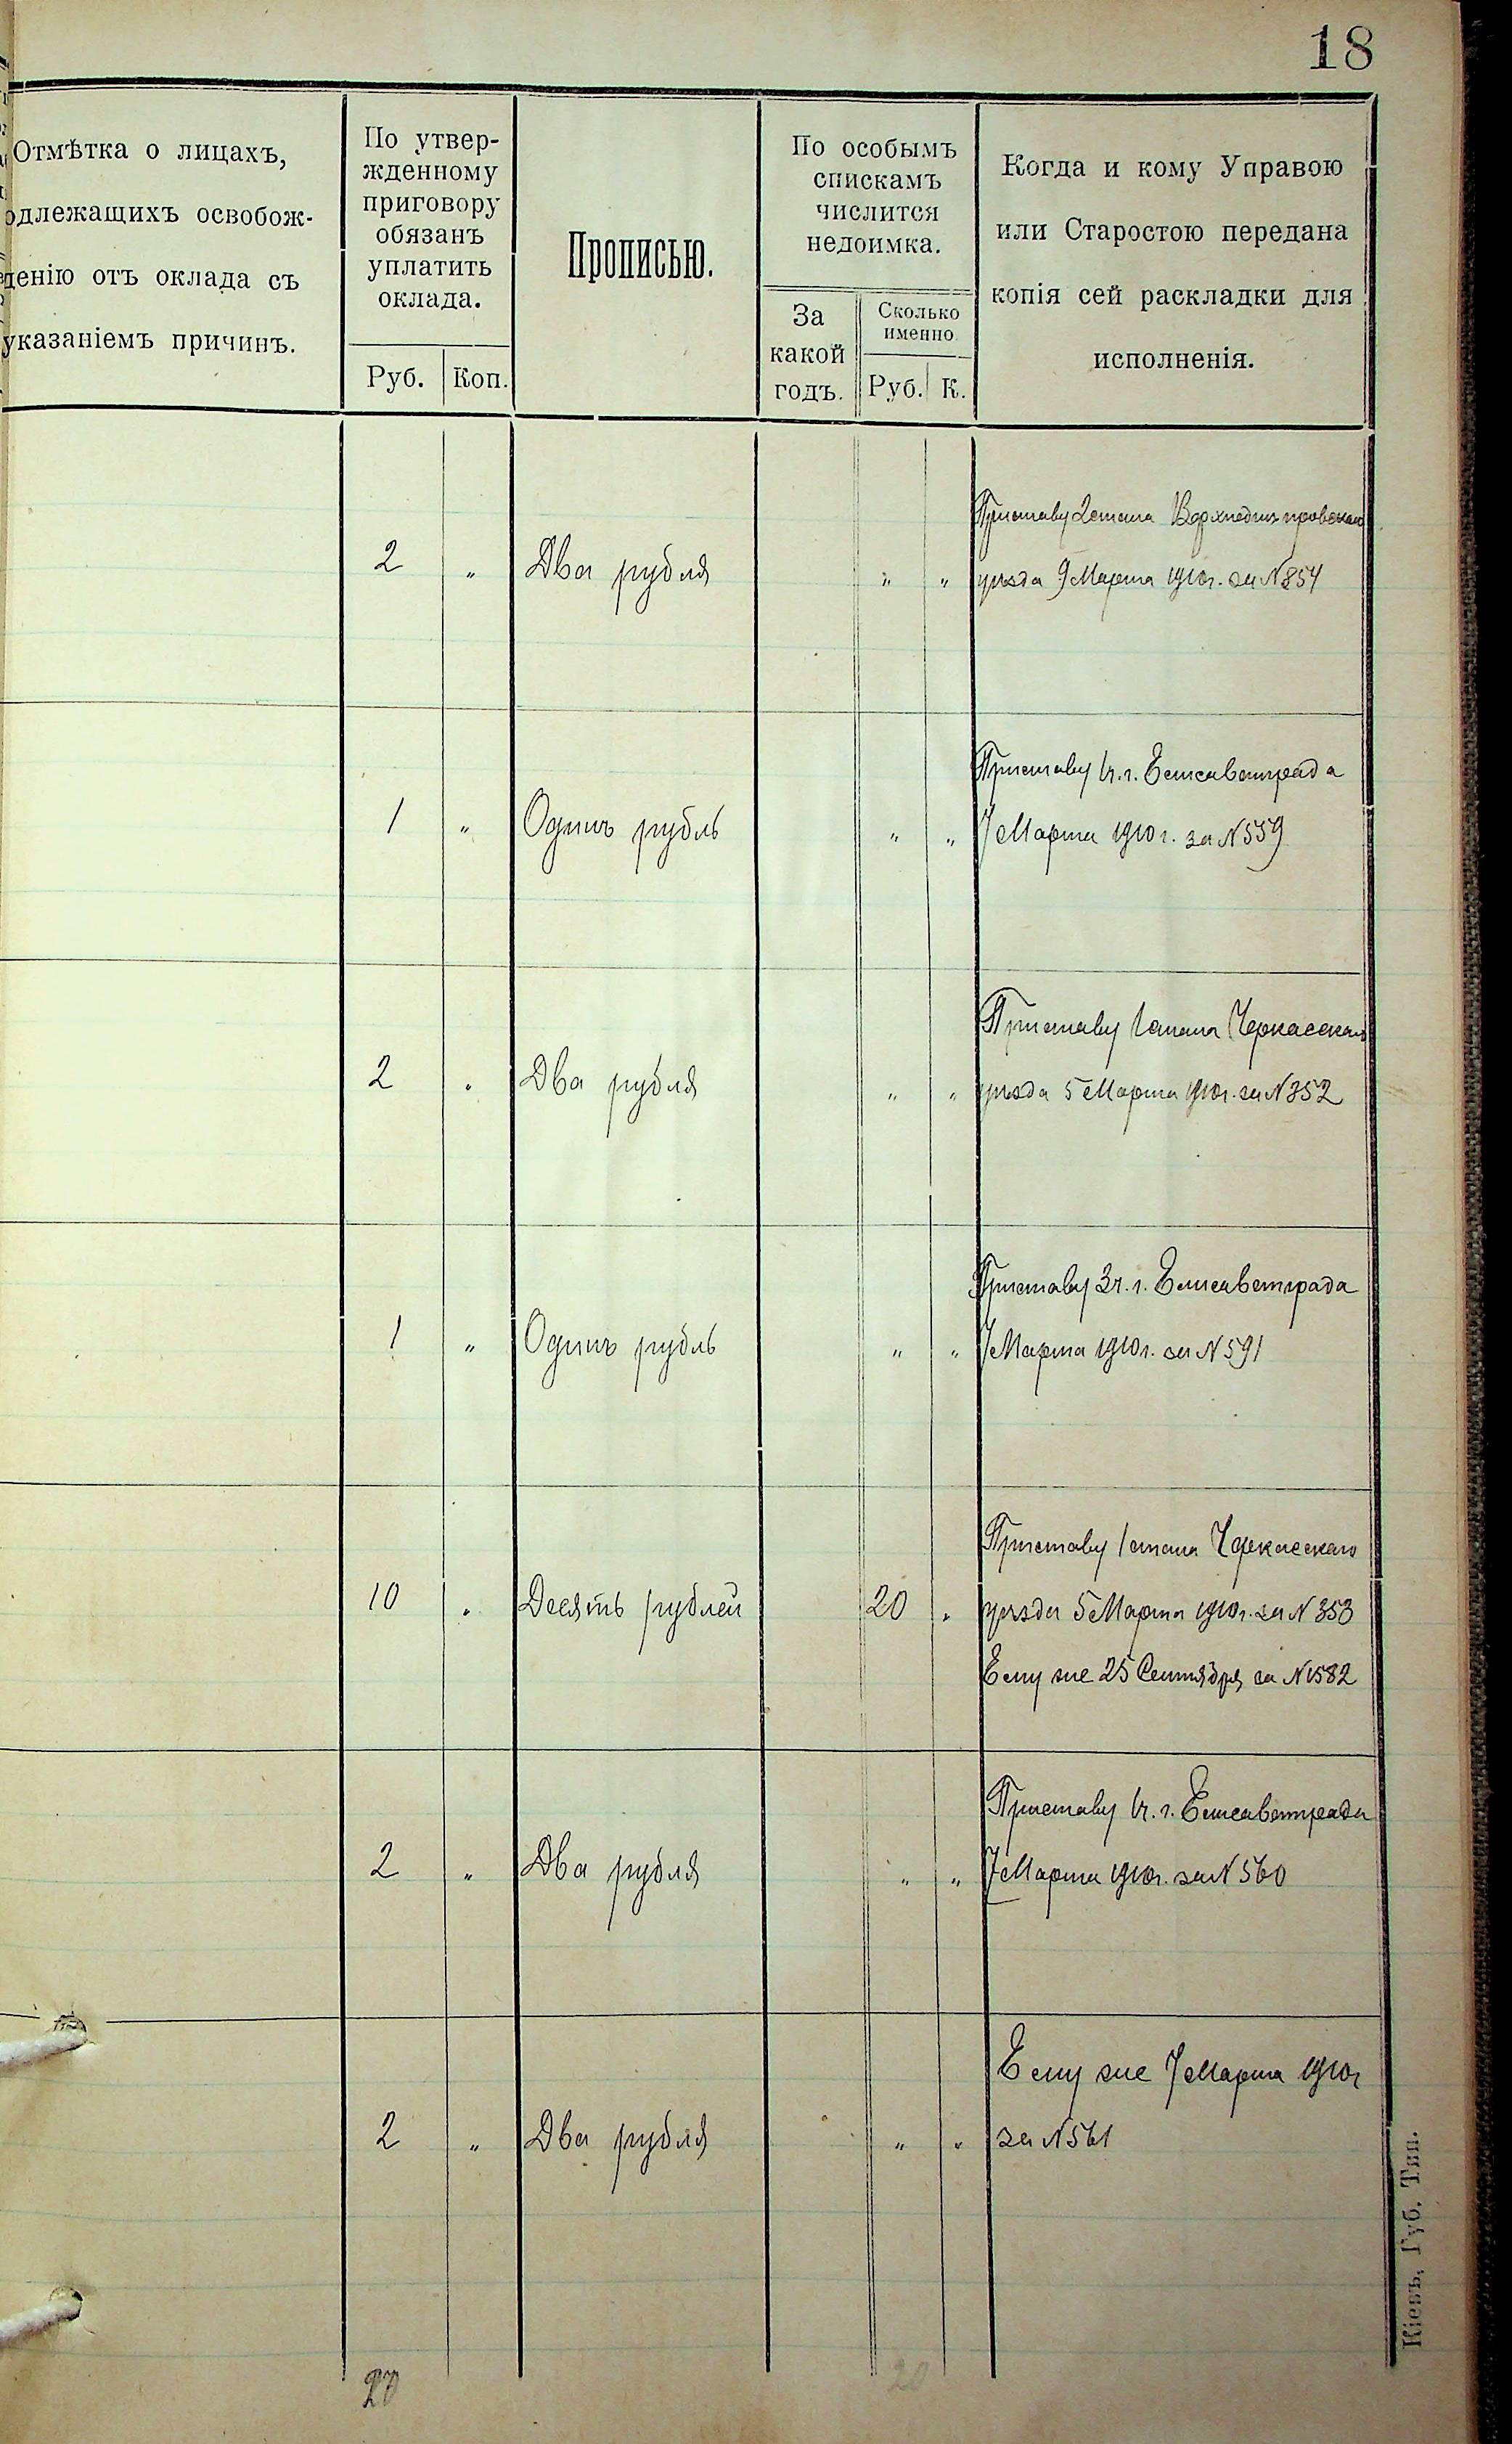 18
Отмѣтка о лицахъ,
одлежащихъ освобож-
денію отъ оклада съ
указаніемъ причинъ.
По утвер-
жденному
приговору
обязанъ
уплатить
оклада.
Руб. Коп.
Прописью.
По особымъ
спискамъ
числится
недоимка.
За
какой
годъ.
Сколько
именно
Руб. К.
Когда и кому Управою
или Старостою передана
копія сей раскладки для
исполненія.
Приставу 2 стана Верхнеднѣпровскаго
2 " Два рубля " " уѣзда 9 Марта 1910 г. за N 854
Приставу 1 ч. г. Елисаветграда
1 " Одинъ рубль " " 7 Марта 1910 г. за N 559
Приставу 1 стана Черкасскаго
2 " Два рубля " " уѣзда 5 Марта 1910 г. за N 352
Приставу 3 ч. г. Елисаветграда
1 " Одинъ рубль " " 7 Марта 1910 г. за N 591
Приставу 1 стана Черкасскаго
10 " Десять рублей 20 " уѣзда 5 Марта 1910 г. за N 353
Ему же 25 Сентября за N 1582
Приставу 1 ч. г. Елисаветграда
2 " Два рубля " " 7 Марта 1910 г. за N 560
Ему же 7 Марта 1910 г
2 " Два рубля " " за N 561
20
20
Кіевъ, Губ. Тип.